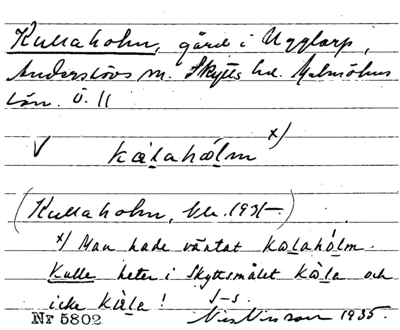 Kullaholm, gård i Ugglarp,
Anderslövs sn. Skytts hd. Malmöhus
län. Ö. 11
V kæ̀lahɔ́lm x)
(Kullaholm, bl. 1931-)
x) Man hade väntat kælahɔ́lm.
Kulle heter i Skyttsmålet kæ̀la och
icke kæ̀la! J-s.
Nr 5802 Nils Nilsson 1935.